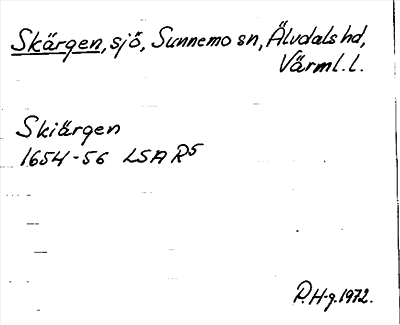 Skärgen, sjö, Sunnemo sn, Älvdals hd,
Värml. l.
Skiärgen
1654-56 LSA R5
P. H-g. 1972.